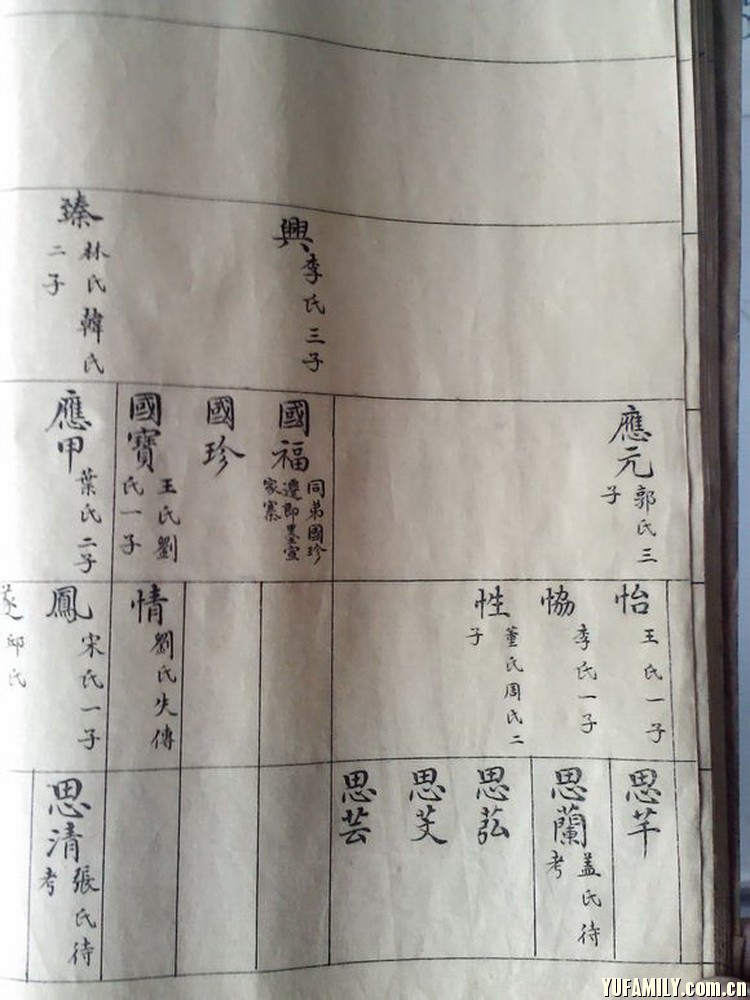 興
李氏三子
臻
林氏韓氏
二子
應元
郭氏三
子
國福
同弟國珍
遷即墨宣
家寨
國珍
國寶
王氏劉
氏一子
應甲
葉氏二子
怡
王氏一子
恊
李氏一子
性
董氏周氏二
子
情
劉氏失傳
鳳
宋氏一子
邱氏
思芊
思蘭
蓋氏待
考
思芸
思清
張氏待
考
YUFAMILY.com.cn